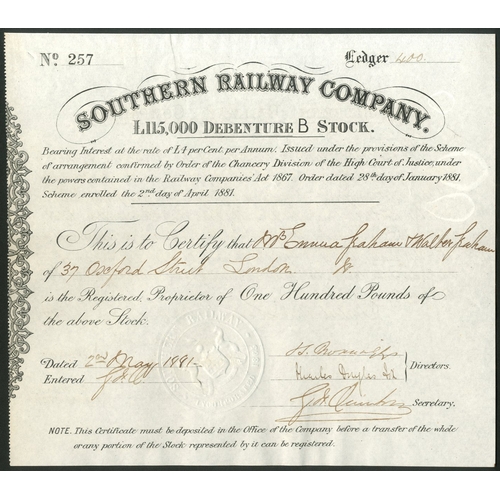 No. 257 Ledger 400.
SOUTHERN RAILWAY COMPANY.
£115,000 DEBENTURE B STOCK.
Bearing Interest at the rate of £4 per Cent. per Annum. Issued under the provisions of the Scheme
of arrangement confirmed by Order of the Chancery Division of the High Court of Justice, under
the powers contained in the Railway Companies' Act 1867. Order dated 28th day of January 1881.
Scheme enrolled the 2nd day of April 1881.
This is to Certify that Mrs Emma Graham & Walter Graham
of 37 Oxford Street London W
is the Registered Proprietor of One Hundred Pounds of
the above Stock.
RAILWAY
Dated 2nd May 1881
Directors.
Entered
Secretary.
NOTE. This Certificate must be deposited in the Office of the Company before a transfer of the whole
or any portion of the Stock represented by it can be registered.